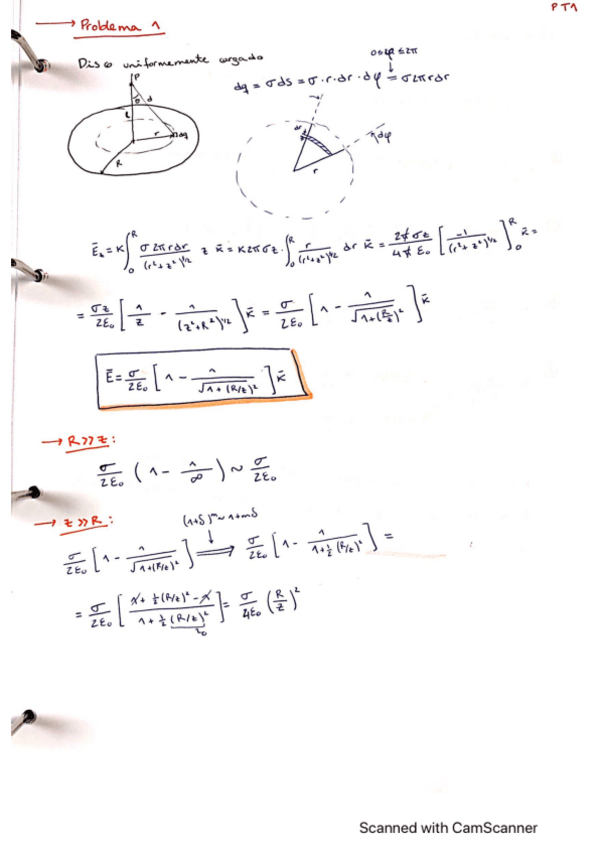 PT1
→ Problema 1
Disco uniformemente cargado
0≤φ≤2π
dq = σds = σ·r·dr·dφ = σ2πrdr
P
d
z
r
dq
R
dr
dφ
r
Ē = K∫₀ᴿ σ2πrdr/(r²+z²)^(3/2) z k̄ = K2πσz·∫₀ᴿ r/(r²+z²)^(3/2) dr k̄ = 2πσz/4πε₀ [-1/(r²+z²)^(1/2)]₀ᴿ k̄ =
= σz/2ε₀ [1/z - 1/(z²+R²)^(1/2)] k̄ = σ/2ε₀ [1 - 1/√(1+(R/z)²)] k̄
Ē = σ/2ε₀ [1 - 1/√(1+(R/z)²)] k̄
→ R>>z:
σ/2ε₀ (1 - 1/∞) ~ σ/2ε₀
→ z>>R:
(1+δ)^m ~ 1+mδ
σ/2ε₀ [1 - 1/√(1+(R/z)²)] ⟹ σ/2ε₀ [1 - 1/(1+½(R/z)²)] =
= σ/2ε₀ [(1+½(R/z)²-1)/(1+½(R/z)²)] = σ/4ε₀ (R/z)²
≈0
Scanned with CamScanner